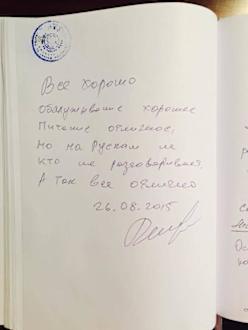 Все хорошо
обслуживание хорошее
Питание отличное,
Но на Руском не
кто не разговаривает,
А так все отлично
26.08.2015